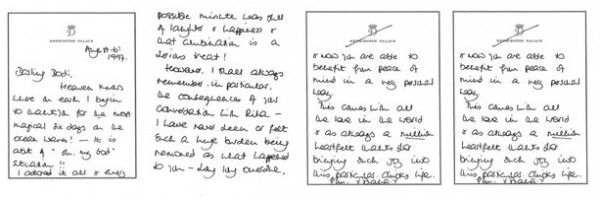 KENSINGTON PALACE
August 6th
1997.
Darling Dodi,
Heaven knows
where on earth I begin
to thank you for the most
magical six days on the
ocean waves! - It is
a bit of "Oh, my God"
situation!!
I adored it all & every
possible minute was full
of laughter & happiness &
that combination is a
serious treat!
However I shall always
remember in particular,
the consequences of your
conversation with
I have never seen or felt
such a huge burden being
removed as what happened
to you -
KENSINGTON PALACE
& now you are able to
benefit from peace of
mind in a very personal
way.
This comes with all
the love in the world
& as always a million
heartfelt thanks for
bringing such joy into
this particular chicks life.
from Diana x
KENSINGTON PALACE
& now you are able to
benefit from peace of
mind in a very personal
way.
This comes with all
the love in the world
& as always a million
heartfelt thanks for
bringing such joy into
this particular chicks life.
from Diana x